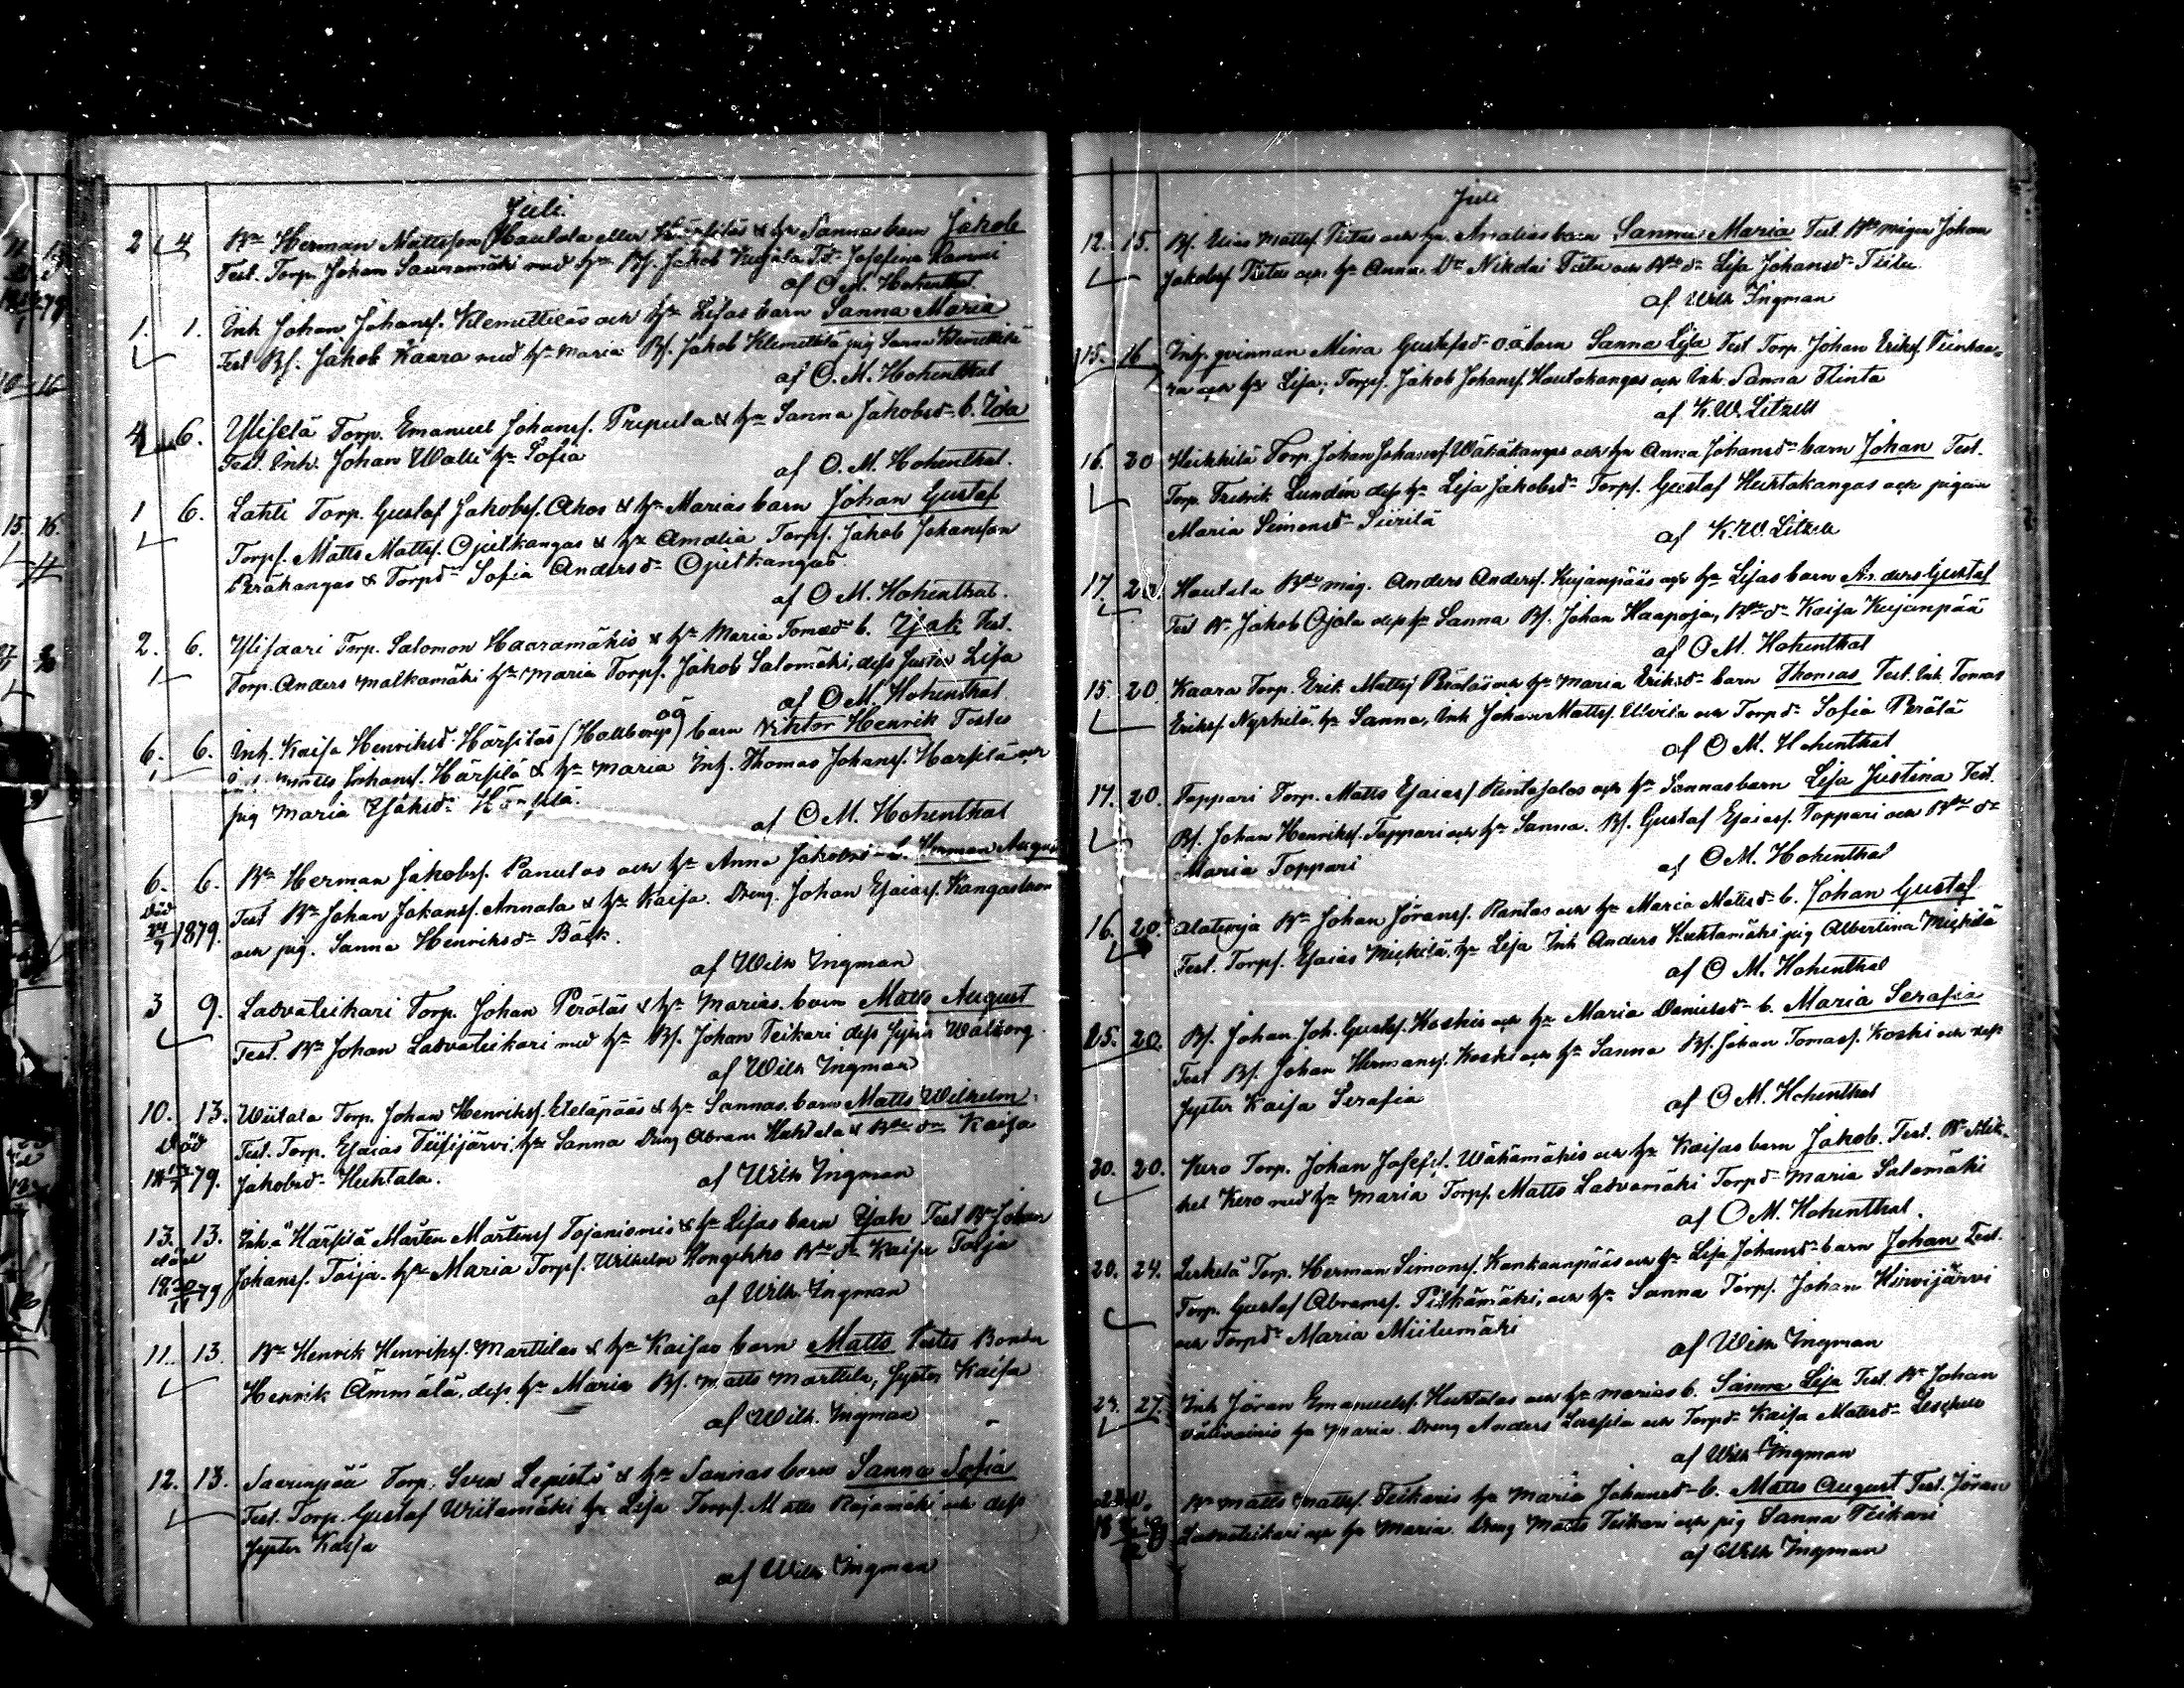 Juli.
2 4 Bn Herman Mattsson Hautala eller Härsiläs & hu Sannas barn Jakob
Test. Torp. Johan Saunamäki med hu Bs. Jakob Kujala Td Josefina Rammi
af O. M. Hohenthal
1. 1. Inh Johan Johanss. Klemettiläs och hu Lisas barn Sanna Maria
Test Bs. Jakob Kaara med hu Maria Bs. Jakob Klemettilä pig Sanna Klemettilä
af O. M. Hohenthal
4 6. Yliselä Torp. Emanuel Johanss. Prepula & hu Sanna Jakobsd b. Ida
Test. Inh. Johan Walli hu Sofia
af O. M. Hohenthal.
1 6. Lahti Torp. Gustaf Jakobss. Ahos & hu Marias barn Johan Gustaf
Torps. Matts Mattss. Ojutkangas & hu Amalia Torps. Jakob Johansson
Peräkangas & Torpd Sofia Andersd Ojutkangas.
af O M. Hohenthal.
2. 6. Ylisaari Torp. Salomon Haaramäkis & hu Maria Tomasd b. Isak Test.
Torp. Anders Malkamäki hu Maria Torps. Jakob Salomäki, dess hustru Lisa
af O M. Hohenthal
6. 6. Inh. Kaisa Henriksd Härsiläs (Hallbergs) oä barn Viktor Henrik Testes
Matts Johanss. Härsilä & hu Maria Inh. Thomas Johanss. Harsilä och
pig Maria Isaksd Härsilä.
af O M. Hohenthal
6. 6. Bn Herman Jakobss. Panulas och hu Anna Jakobsd b. Herman August
död 24/9 1879. Test Bn Johan Johanss. Annala & hu Kaisa. Dreng. Johan Esaiass. Kangas
och pig. Sanna Henriksd Bäck.
af Wilh Ingman
3 9. Ladvateikari Torp. Johan Peräläs & hu Marias barn Matts August
Test. Bn Johan Ladvateikari med hu Bs. Johan Teikari dess syster Walborg
af Wilh Ingman
10. 13. Wiitala Torp. Johan Henrikss. Eteläpääs & hu Sannas barn Matts Wilhelm.
Död Test. Torp. Esaias Tiisijärvi hu Sanna Dreng Abram Huhtala & Bn dr Kaisa
79. Jakobsd Huhtala.
af Wilh Ingman
13. 13. Inh. a Härsilä Mårten Mårtenss Tojaniomis & hu Lisas barn Isak Test Bn Johan
död 79 Johanss. Toija. hu Maria Torps. Wilhelm Hongikko Bn dr Kaisa Toija
af Wilh. Ingman
11. 13. Bn Henrik Henrikss. Marttilas & hu Kaisas barn Matts Testes Bonden
Henrik Ämmälä, dess hu Maria Bs. Matts Marttila, syster Kaisa
af Wilh. Ingman
12. 13. Saarenpää Torp. Sven Lepistö & hu Sannas barn Sanna Sofia
Test. Torp. Gustaf Wiitamäki hu Lisa Torps. Matts Rajamäki och dess
syster Kaisa
af Wilh Ingman
Juli
12. 15. Bs. Elias Mattss. Tiitus och hu. Amalias barn Sanna Maria Test. Bns mågen Johan
Jakobss. Tiitus och hu Anna. Dr Nikolai Tiitu och Bns dr Lisa Johansd Tiitu.
af Wilh Ingman
15. 16 Inh. qvinnan Mina Gustafsd oä barn Sanna Lisa Test Torp. Johan Erikss. Teinkaa-
ra och hu Lisa; Torps. Jakob Johanss. Hautakangas och Inh. Sanna Flinta
af K. W. Litzell
16. 20 Heikkilä Torp. Johan Johanss. Wähäkangas och hu Anna Johansd barn Johan Test.
Torp. Fredrik Lundén dess hu Lisa Jakobsd Torps. Gustaf Hautakangas och pigan
Maria Simonsd Siirilä
af K. W. Litzell
17. 20. Hautala Bns måg. Anders Anderss. Kujanpääs och hu Lisas barn Anders Gustaf
Test Bn Jakob Ojala dess hu Sanna Bs. Johan Haapoja, Bns dr Kaisa Kujanpää
af O M. Hohenthal
15. 20. Kaara Torp. Erik Mattss Peräläs och hu Maria Eriksd barn Thomas Test. Inh Tomas
Erikss. Nyrhilä hu Sanna, Inh Johan Mattss. Ulvila och Torpd Sofia Perälä
af O M. Hohenthal
17. 20. Toppari Torp. Matts Esaiass Rintasalos och hu Sannas barn Lisa Justina Test.
Bs. Johan Henrikss. Toppari och hu Sanna. Bs. Gustaf Esaiass. Toppari och Bns dr
Maria Toppari
af O M. Hohenthal
16. 20. Alatorja Bn Johan Jöranss. Rantas och hu Maria Mattsd b. Johan Gustaf
Test. Torps. Esaias Mickilä, hu Lisa Inh Anders Kuhtamäki pig Albertina Mickilä
af O M. Hohenthal
15. 20. Bs. Johan Joh. Gustfs. Koskis och hu Maria Danielsd b. Maria Serafia
Test Bs. Johan Hermanss. Koski och hu Sanna Bs. Johan Tomass. Koski och dess
syster Kaisa Serafia
af O M. Hohenthal
20. 20. Kero Torp. Johan Josefss. Wähämäkis och hu Kaisas barn Jakob. Test. Bn Mik-
kel Kero med hu Maria Torps. Matts Ladvamäki Torpd Maria Salomäki
af O M. Hohenthal.
20. 24. Leskelä Torp. Herman Simonss. Kankaanpääs och hu Lisa Johansd barn Johan Test.
Torp. Gustaf Abramss. Pitkämäki, och hu Sanna Torps. Johan Hirvijärvi
och Torpd Maria Miilumäki
af Wilh Ingman
24. 27. Inh Jöran Emanuelss. Huhtalas och hu Marias b. Sanna Lisa Test. Bn Johan
Välivainio hu Maria. Dreng Anders Luspia och Torpd Kaisa Matsd
af Wilh Ingman
Bn Matts Mattss. Teikaris hu Maria Johansd b. Matts August Test. Jöran
Ladvateikari och hu Maria. Dreng Matts Teikari och pig Sanna Teikari
af Wilh Ingman